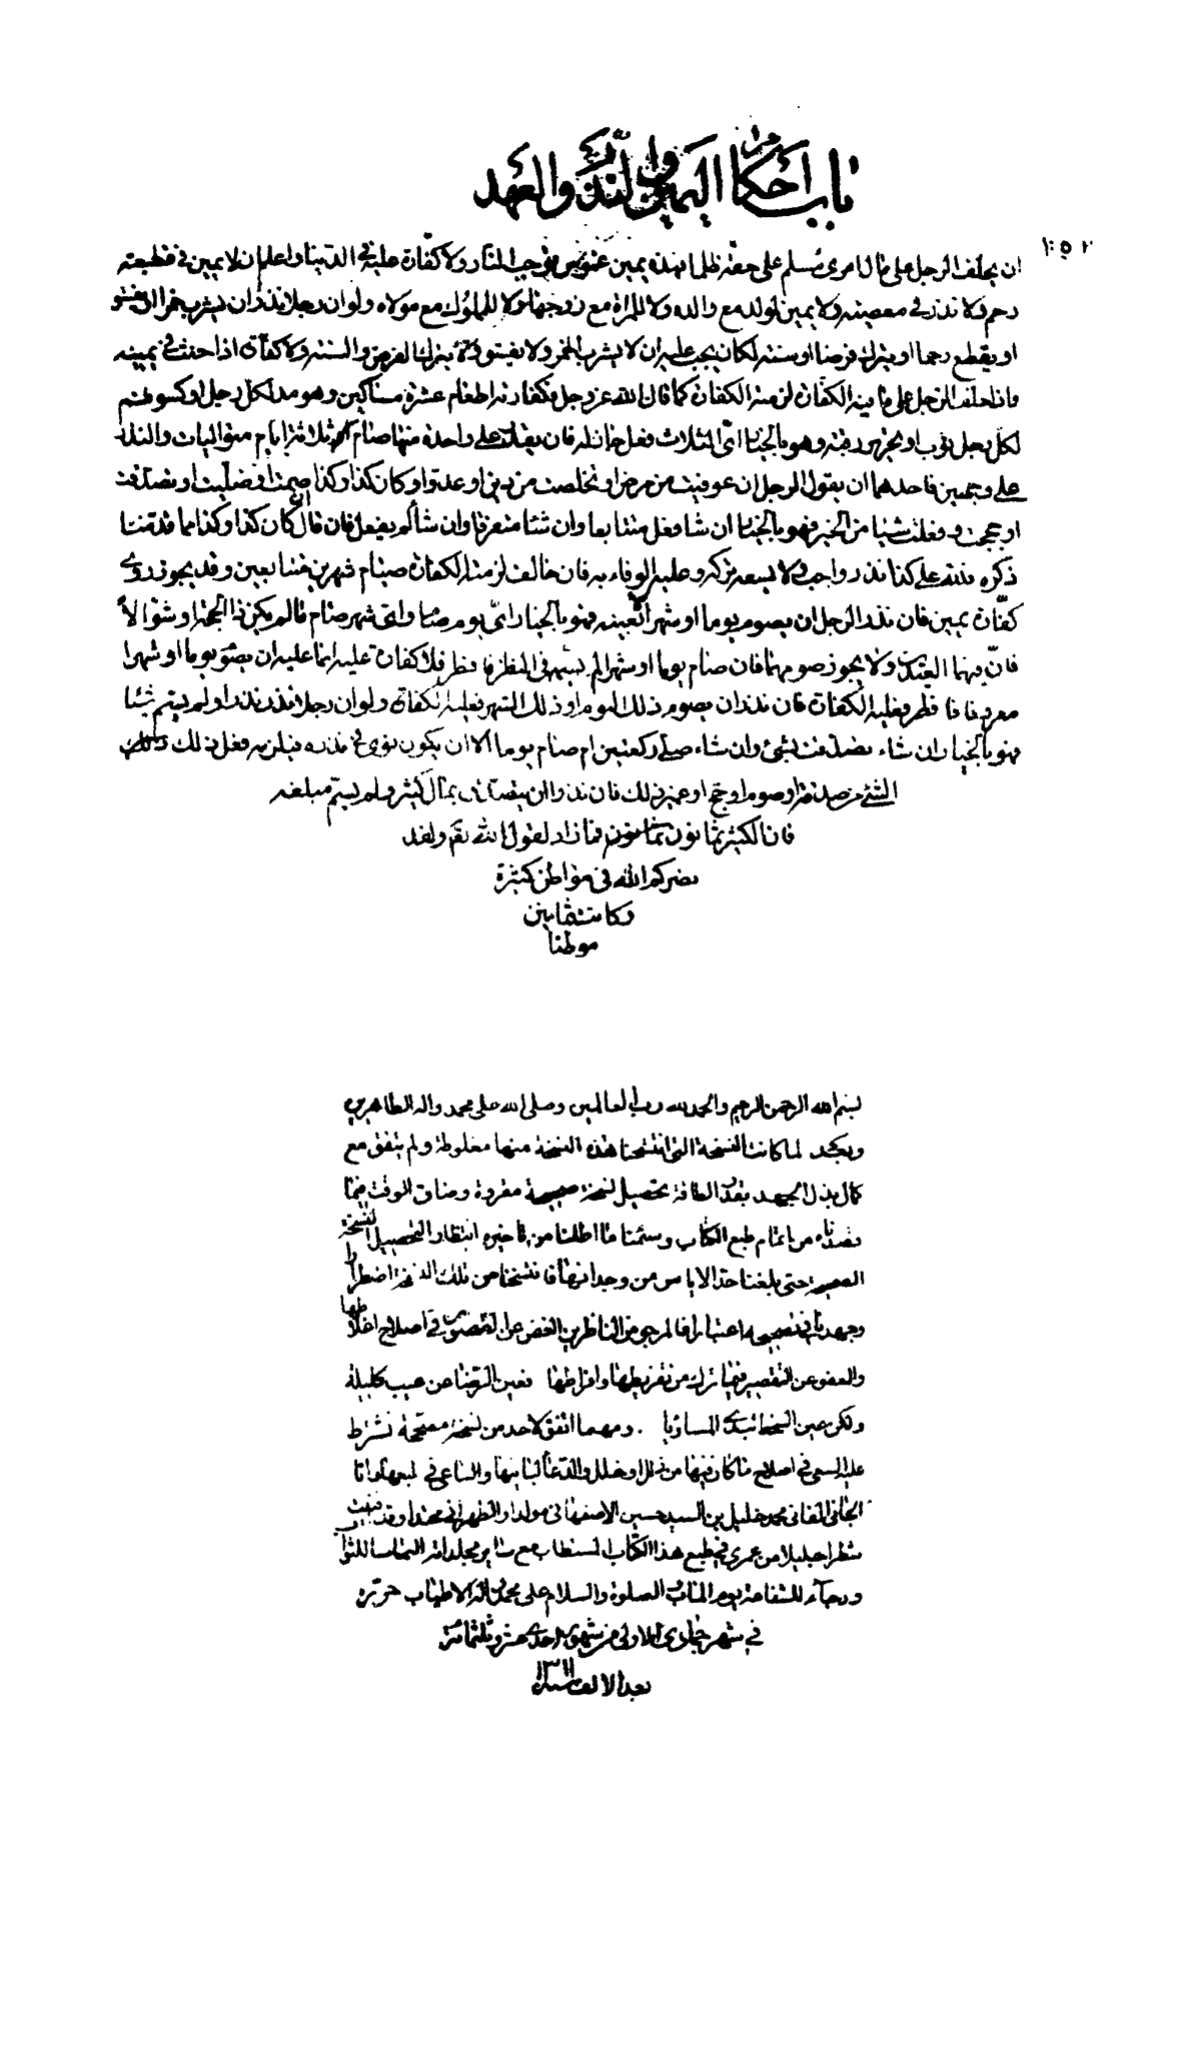 باب أحكام اليمين والنذر والعهد
١٥٢
ان يحلف الرجل على مال امرئ مسلم على حقه ظلما فهذه يمين غموس توجب النار ولا كفارة عليه في الدنيا واعلم ان لا يمين في قطيعة
رحم ولا نذر في معصية ولا يمين لولد مع والده ولا للمرأة مع زوجها ولا للمملوك مع مولاه ولو ان رجلا نذر ان يشرب خمرا او يفسق
او يقطع رحما او يترك فرضا او سنة لكان يجب عليه ان لا يشرب الخمر ولا يفسق ولا يترك الفرض والسنة ولا كفارة اذا حنث في يمينه
فاذا حلف الرجل على ما فيه الكفارة لزمته الكفارة كما قال الله عز وجل فكفارته اطعام عشرة مساكين وهو مد لكل رجل او كسوتهم
لكل رجل ثوب او تحرير رقبة وهو بالخيار اى الثلاث فعل جاز له فان لم يقدر على واحدة منها صام ثلاثة ايام متواليات والنذر
على وجهين فاحدهما ان يقول الرجل ان عوفيت من مرض او تخلصت من دين او عدو او كان كذا وكذا صمت او صليت او تصدقت
او حججت او فعلت شيئا من الخير فهو بالخيار ان شاء فعل متتابعا وان شاء متفرقا وان شاء لم يفعل فان قال ان كان كذا وكذا مما قدمنا
ذكره فلله على كذا نذر واجب ولا يسعه تركه وعليه الوفاء به فان خالف لزمته الكفارة صيام شهرين متتابعين وقد يجوز روى
كفارة يمين فان نذر الرجل ان يصوم يوما او شهرا لا بعينه فهو بالخيار اى يوم صام واى شهر صام ما لم يكن ذا الحجة او شوالا
فان فيهما العيدين ولا يجوز صومهما فان صام يوما او شهرا لم يسمه في النظر فافطر فلا كفارة عليه انما عليه ان يصوم يوما او شهرا
معروفا فافطر فعليه الكفارة فان نذر ان يصوم ذلك اليوم او ذلك الشهر فعليه الكفارة ولو ان رجلا نذر نذرا ولم يسم شيئا
فهو بالخيار ان شاء تصدقت بشئ وان شاء صلى ركعتين ام صام يوما الا ان يكون نوى في نذره فيلزمه فعل ذلك
الشئ من صدقة او صوم او حج او غير ذلك فان نذر ان يتصدق بمال كثير ولم يسم مبلغه
فان الكثير ثمانون فما زاد لقول الله تعالى ولقد
نصركم الله في مواطن كثيرة
وكانت ثمانين
موطنا
بسم الله الرحمن الرحيم والحمد لله رب العالمين وصلى الله على محمد واله الطاهرين
وبعد لما كانت النسخة التى انتسخنا هذه النسخة منها مغلوطة ولم يتفق مع
كمال بذل الجهد بقدر الطاقة تحصيل نسخة صحيحة مقروة وضاق الوقت فيما
قصدناه من اتمام طبع الكتاب وسئمنا ما اطلنا من تاخيره انتظار التحصيل النسخة
الصحيحة حتى بلغنا حد الاياس من وجدانها فانتسخنا من تلك النسخة اضطرارا
وجهدنا في تصحيحه اعتبارا فالمرجو من الناظرين الغض عن القصور في اصلاح اغلاطها
والعفو عن التقصير فيما ترك من تفريطها وافراطها فعين الرضا عن عيب كليلة
ولكن عين السخط تبدى المساويا . ومهما اتفق لاحد من نسخة مصححة نشرط
عليه السعى في اصلاح ما كان فيها من زلل او خلل والدعاء لبانيها والساعى في طبعها وانا
الجانى الفانى محمد خليل بن السيد حسين الاصفهانى مولدا والطهرانى محتدا وقد
شطرا جليلا من عمرى في طبع هذا الكتاب المستطاب مع ساير مجلداته التماسا للثواب
ورجاء للشفاعة يوم الماب والصلوة والسلام على محمد واله الاطياب حرره
في شهر جمادى الاولى من شهور احدى عشر وثلثمائة
بعد الالف سنة ١٣١١